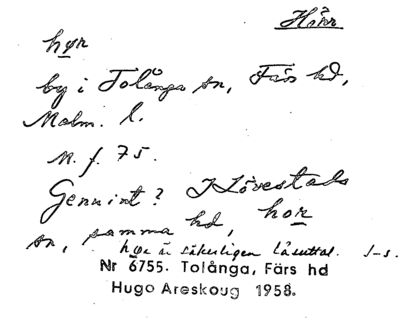 Hörr
hør
by i Tolånga sn, Färs hd,
Malm. l.
M. f. 75.
Genuint? I Lövestads
sn, samma hd, hor
hør är säkerligen låsuttal. J-s.
Nr 6755. Tolånga, Färs hd
Hugo Areskoug 1958.